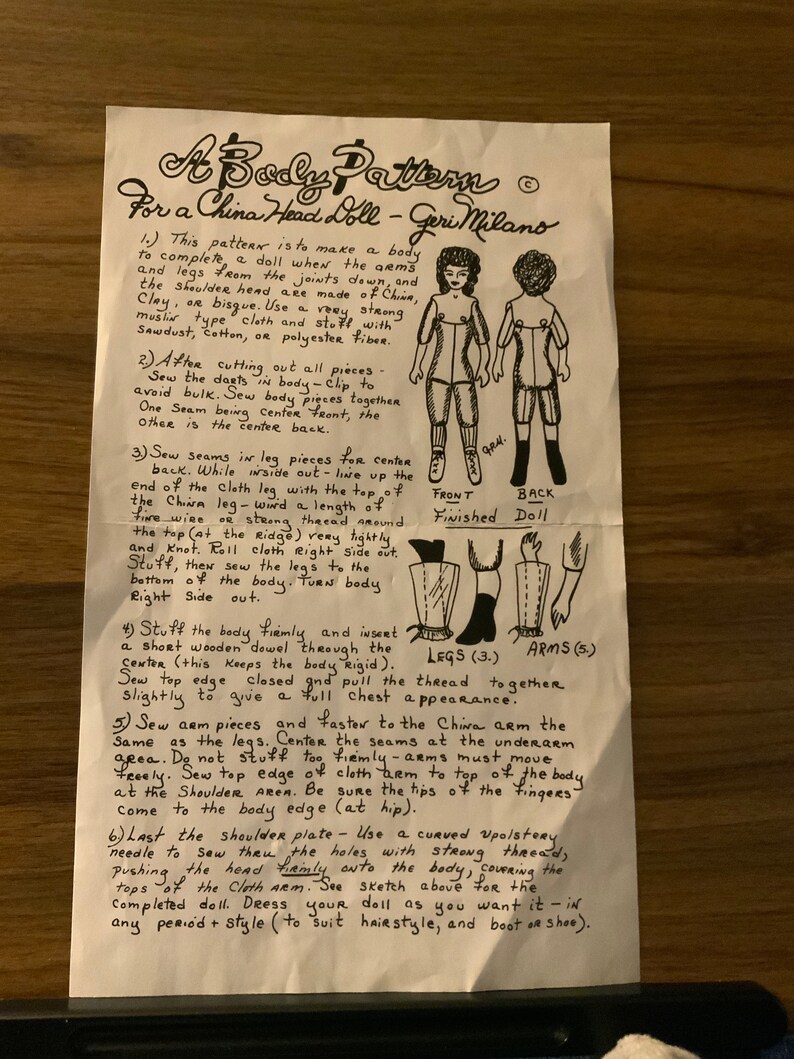 A Body Pattern ©
For a China Head Doll – Geri Milano
1.) This pattern is to make a body
to complete a doll when the arms
and legs from the joints down, and
the shoulder head are made of China,
Clay, or bisque. Use a very strong
muslin type cloth and stuff with
sawdust, cotton, or polyester fiber.
2.) After cutting out all pieces -
Sew the darts in body – Clip to
avoid bulk. Sew body pieces together
One seam being center front, the
other is the center back.
3.) Sew seams in leg pieces for center
back. While inside out – line up the
end of the cloth leg with the top of
the China leg – wind a length of
fine wire or strong thread around
the top (at the ridge) very tightly
and knot. Roll cloth right side out.
Stuff, then sew the legs to the
bottom of the body. Turn body
Right Side out.
G.R.M.
FRONT BACK
Finished Doll
LEGS (3.) ARMS (5.)
4.) Stuff the body firmly and insert
a short wooden dowel through the
center (this keeps the body rigid).
Sew top edge closed and pull the thread together
slightly to give a full chest appearance.
5.) Sew arm pieces and fasten to the China arm the
same as the legs. Center the seams at the underarm
area. Do not stuff too firmly – arms must move
freely. Sew top edge of cloth arm to top of the body
at the Shoulder area. Be sure the tips of the fingers
come to the body edge (at hip).
6.) Last the shoulder plate – Use a curved upolstery
needle to sew thru the holes with strong thread,
pushing the head firmly onto the body, covering the
tops of the Cloth arm. See sketch above for the
completed doll. Dress your doll as you want it – in
any period + style (to suit hairstyle, and boot or shoe).